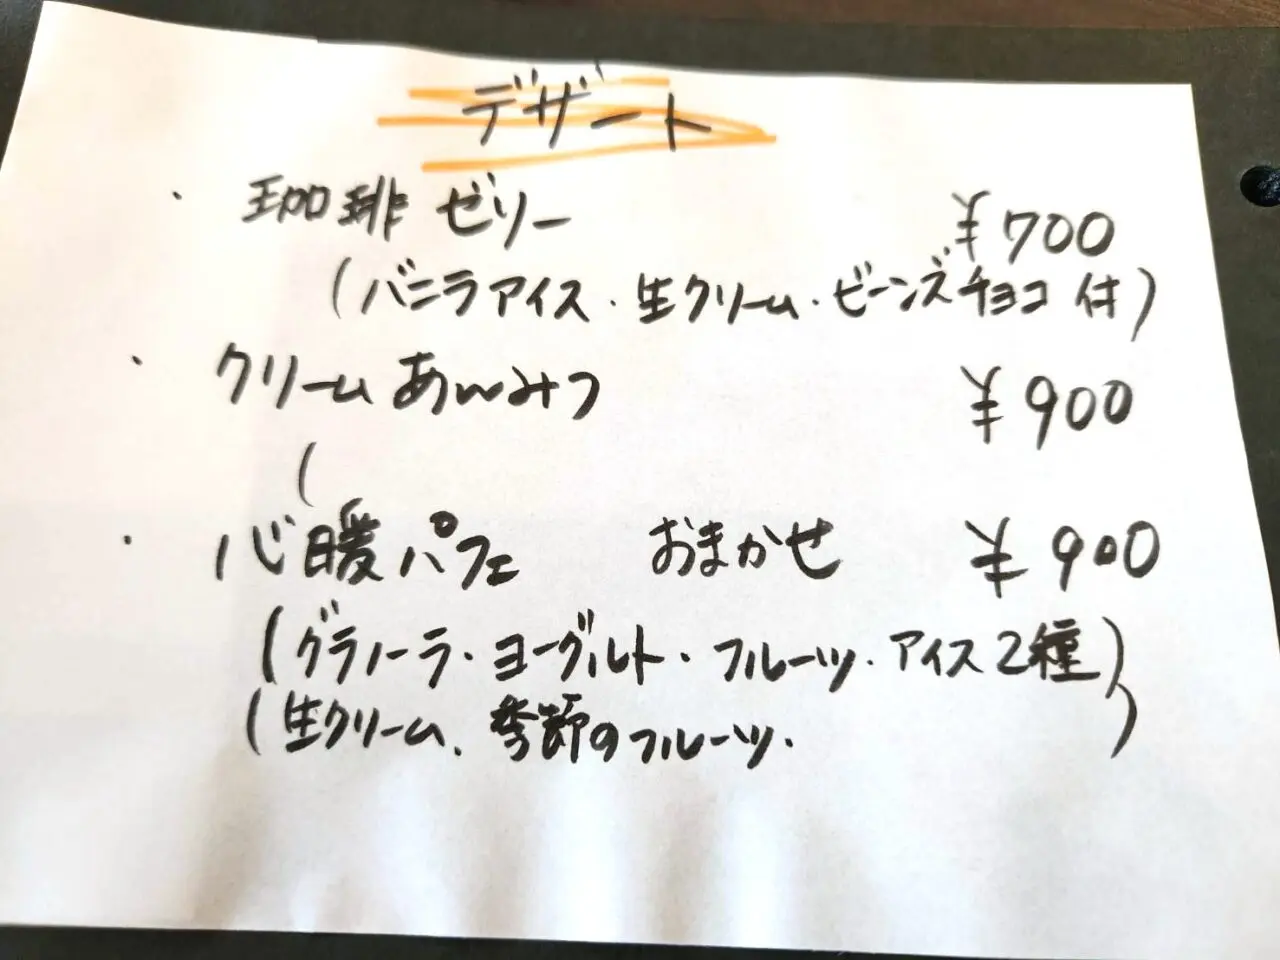 デザート
・ 珈琲ゼリー ¥700
(バニラアイス・生クリーム・ビーンズチョコ付)
・ クリームあんみつ ¥900
(
・ 心暖パフェ おまかせ ¥900
(グラノーラ・ヨーグルト・フルーツ・アイス2種)
(生クリーム、季節のフルーツ、 )